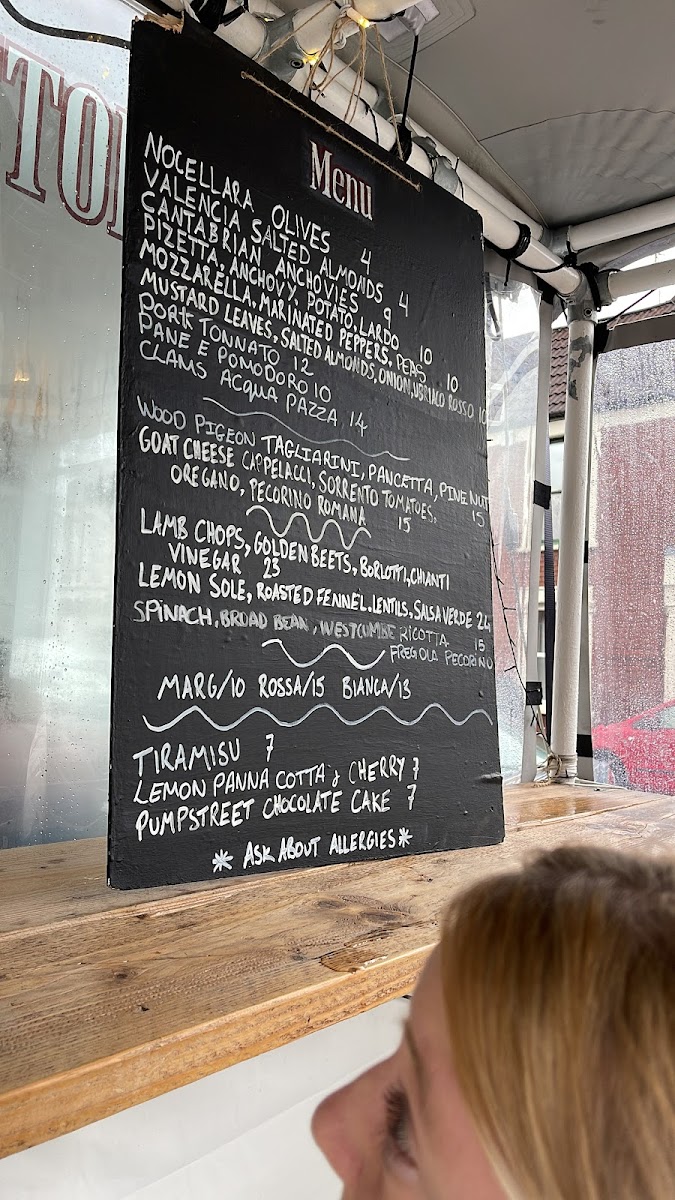 TO
Menu
NOCELLARA OLIVES 4
VALENCIA SALTED ALMONDS 4
CANTABRIAN ANCHOVIES 9
PIZETTA, ANCHOVY, POTATO, LARDO 10
MOZZARELLA, MARINATED PEPPERS, PEAS 10
MUSTARD LEAVES, SALTED ALMONDS, ONION, UBRIACO ROSSO 10
PORK TONNATO 12
PANE E POMODORO 10
CLAMS ACQUA PAZZA 14
WOOD PIGEON TAGLIARINI, PANCETTA, PINE NUT 15
GOAT CHEESE CAPPELACCI, SORRENTO TOMATOES,
OREGANO, PECORINO ROMANA 15
LAMB CHOPS, GOLDEN BEETS, BORLOTTI, CHIANTI
VINEGAR 23
LEMON SOLE, ROASTED FENNEL, LENTILS, SALSA VERDE 24
SPINACH, BROAD BEAN, WESTCOMBE RICOTTA 15
FREGOLA PECORINO
MARG/10 ROSSA/15 BIANCA/13
TIRAMISU 7
LEMON PANNA COTTA & CHERRY 7
PUMPSTREET CHOCOLATE CAKE 7
* ASK ABOUT ALLERGIES *